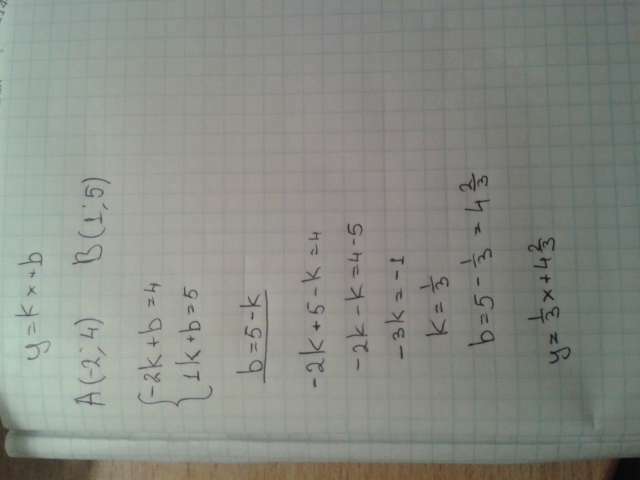 y = kx + b
A(-2; 4) B(1; 5)
{ -2k + b = 4
1k + b = 5
b = 5 - k
-2k + 5 - k = 4
-2k - k = 4 - 5
-3k = -1
k = 1/3
b = 5 - 1/3 = 4 2/3
y = 1/3 x + 4 2/3